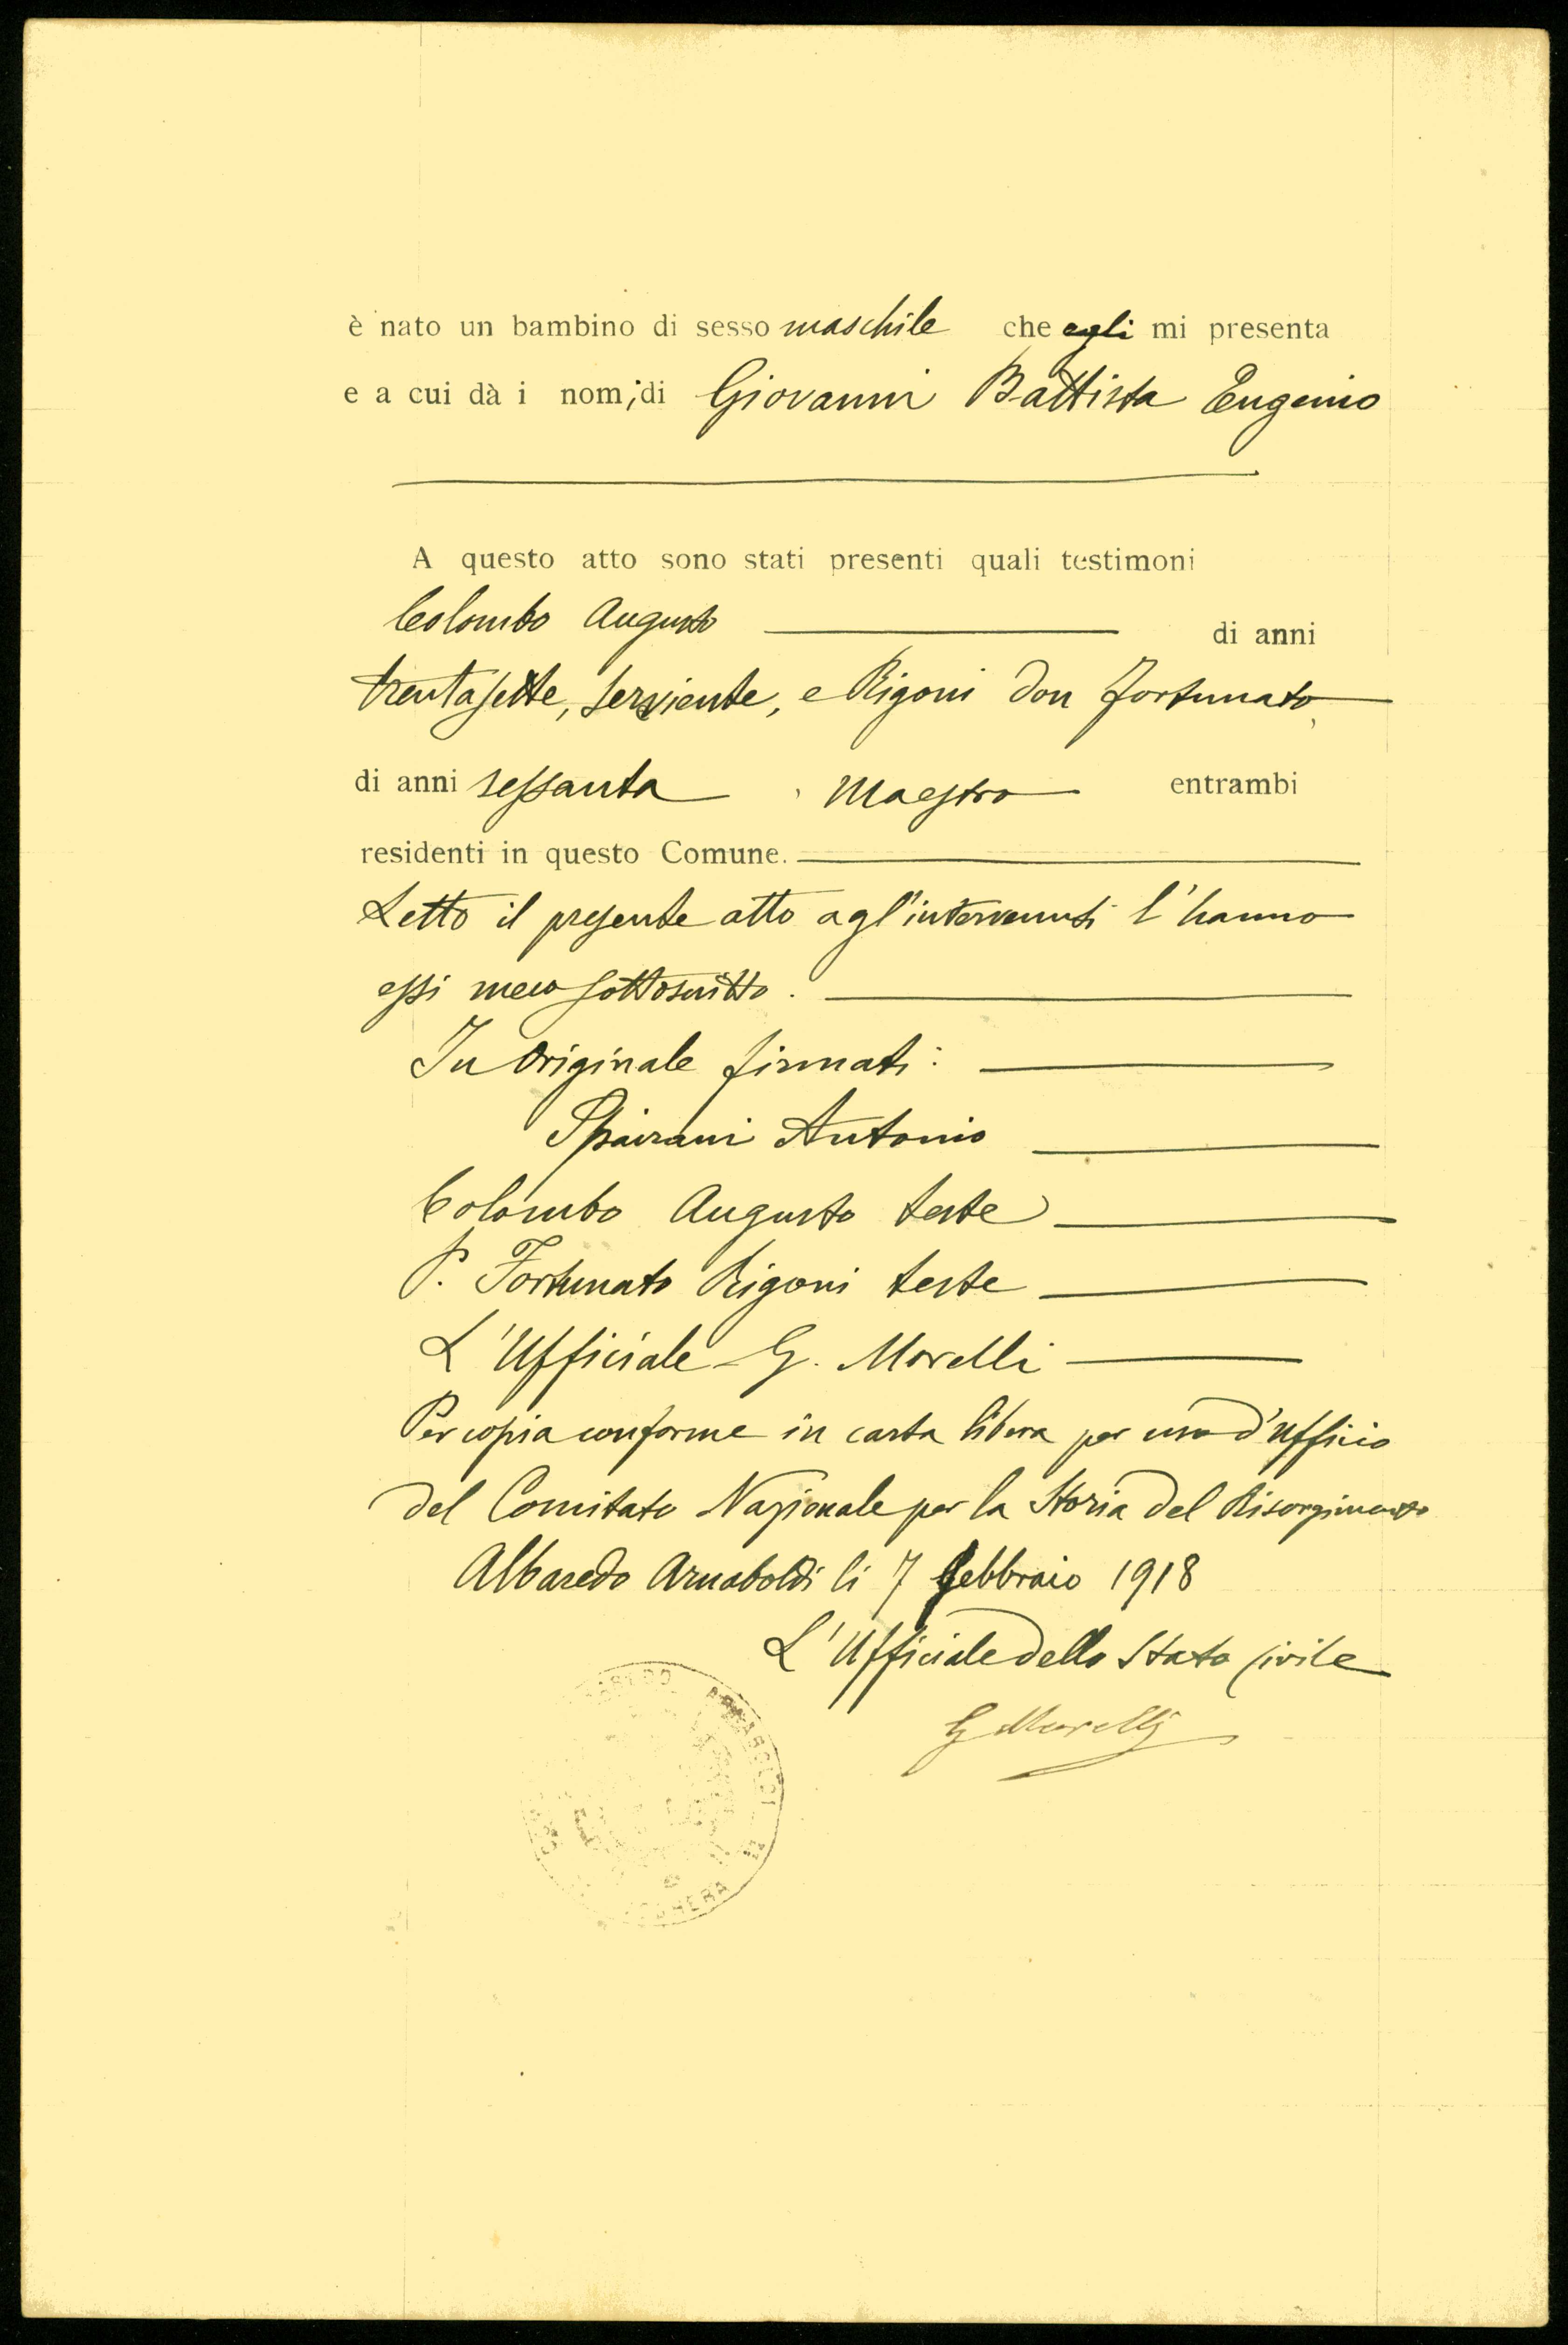 è nato un bambino di sesso maschile che egli mi presenta
e a cui dà i nomi di Giovanni Battista Eugenio
A questo atto sono stati presenti quali testimoni
Colombo Augusto di anni
trentasette, serviente, e Rigoni Don Fortunato,
di anni sessanta, Maestro entrambi
residenti in questo Comune.
Letto il presente atto agl'intervenuti l'hanno
essi meco sottoscritto.
In Originale firmati:
Spairani Antonio
Colombo Augusto teste
P. Fortunato Rigoni teste
L'Ufficiale G. Morelli
Per copia conforme in carta libera per uso d'Ufficio
del Comitato Nazionale per la Storia del Risorgimento
Albaredo Arnaboldi li 7 febbraio 1918
L'Ufficiale dello Stato Civile
G Morelli
ARNABOLDI